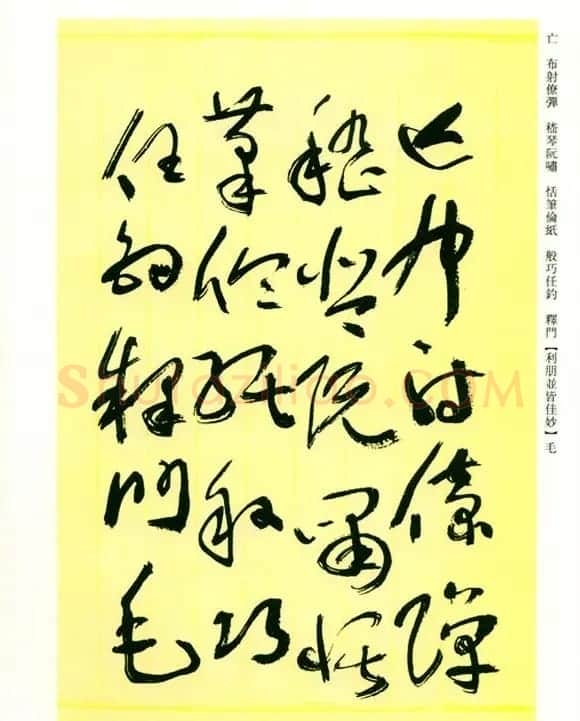 亡 布射僚彈 嵇琴阮嘯 恬筆倫紙 般巧任釣 釋門【利朋並皆佳妙】毛
亡布射僚彈
嵇琴阮嘯恬
筆倫紙般巧
任釣釋門毛
Shufaziliao.com